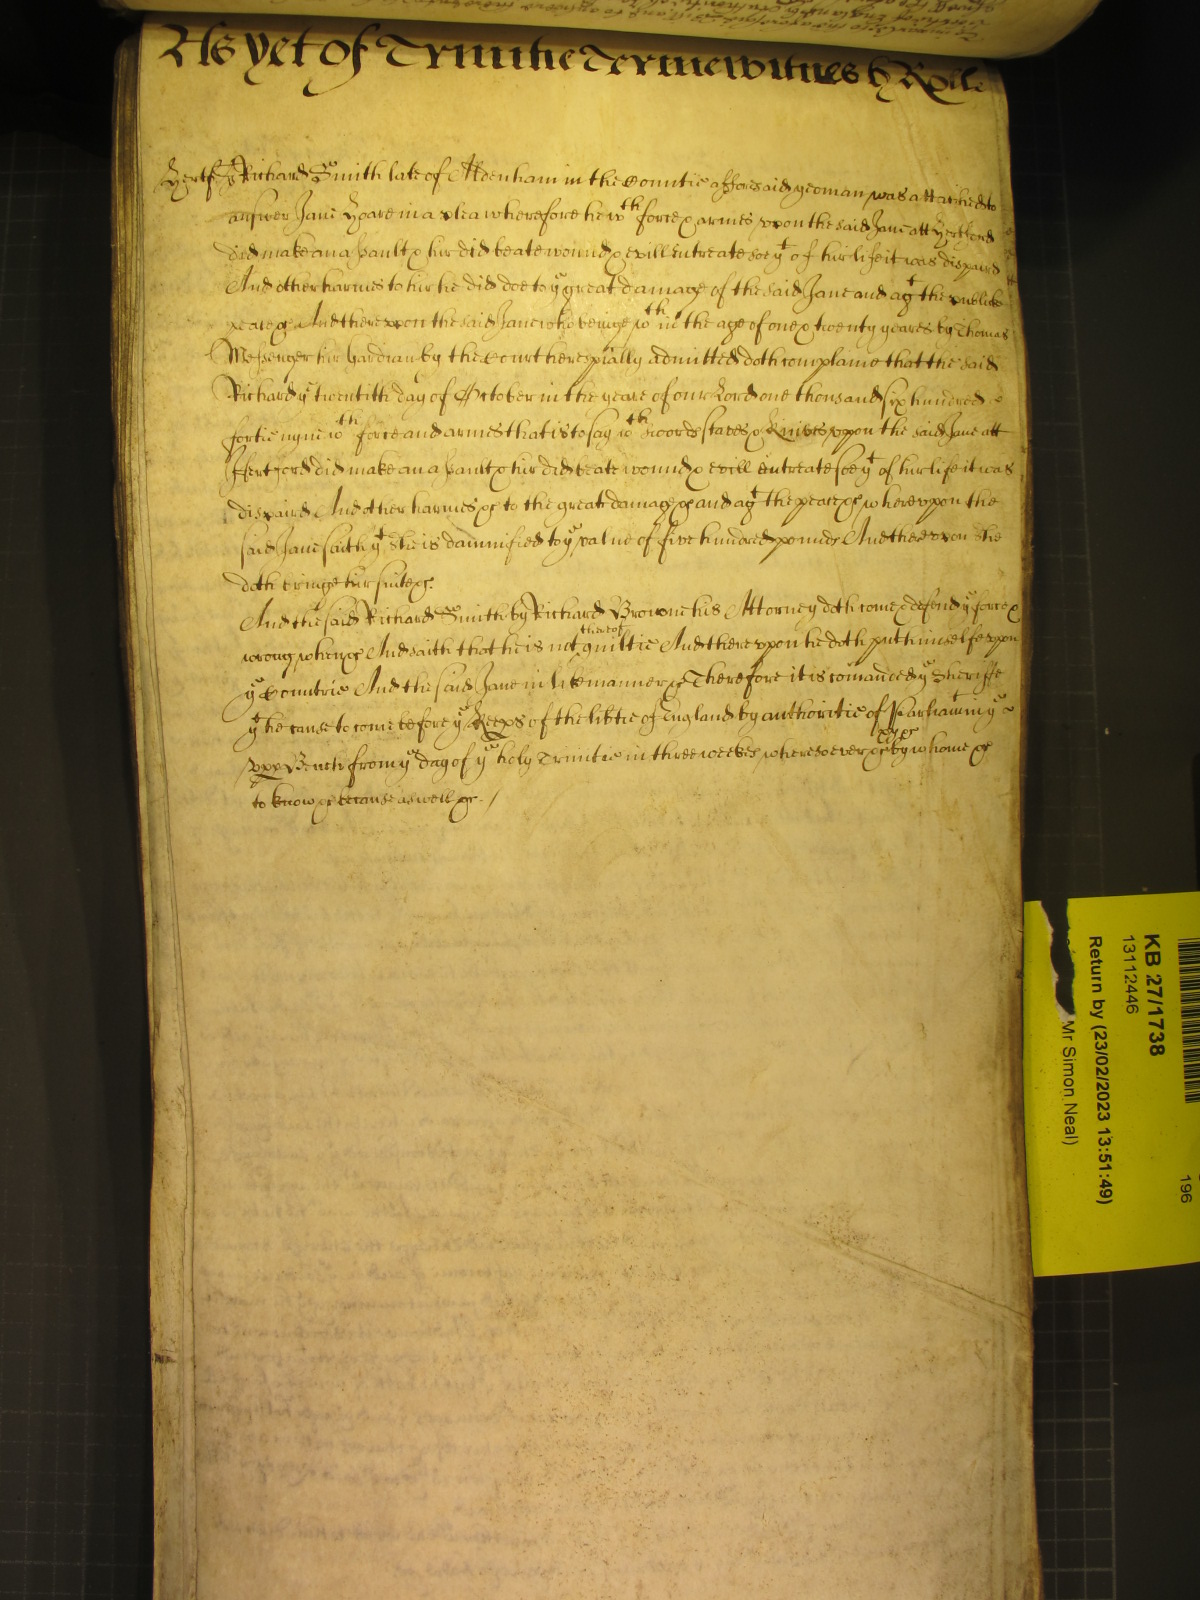 As yet of Trinitie Terme witnes H Rolle
Hertf ss Richard Smith late of Aldenham in the Countie afforesaid yeoman was attatched to
answer Jane Hoare in a plea wherefore he wth force & armes vpon the said Jane att Hertford
did make an assault & hur did beate wound & evill entreate soe yt of hur life it was dispaird
And other harmes to hur he did doe to ye great damage of the said Jane and agt the publick
peace &c And therevpon the said Jane who beinge wthin the age of one & twenty yeares by Thomas
Messenger hur Gardian by the Court here spially admitted doth complaine that the said
Richard ye twentith day of October in the yeare of our Lord one thousand six hundred
fortie nyne wth force and armes that is to say wth swords staves & knives vppon the said Jane att
Hertford did make an assault & hur did beate wound & evill entreate soe yt of hur life it was
dispaird And other harmes &c to the great damage &c and agt the peace &c wherevpon the
said Jane saith yt she is damnified to ye value of five hundred pounds And therevpon she
doth bringe hur suite &c.
And the said Richard Smith by Richard Browne his Attorney doth come & defend ye force &
wrong when &c And saith that he is not thereof guiltie And therevppon he doth putt himselfe vppon
ye Countrie And the said Jane in like manner &c Therefore it is comanded ye Sheriffe
yt he cause to come before ye Keeps of the libtie of England by authoritie of Parliamt in ye
vpp Bench from ye day of ye holy Trinitie in three weekes wheresoever &c xij &c by whome &c
to know &c because aswell &c.
KB 27/1738
13112446
Return by (23/02/2023 13:51:49)
Mr Simon Neal)
196